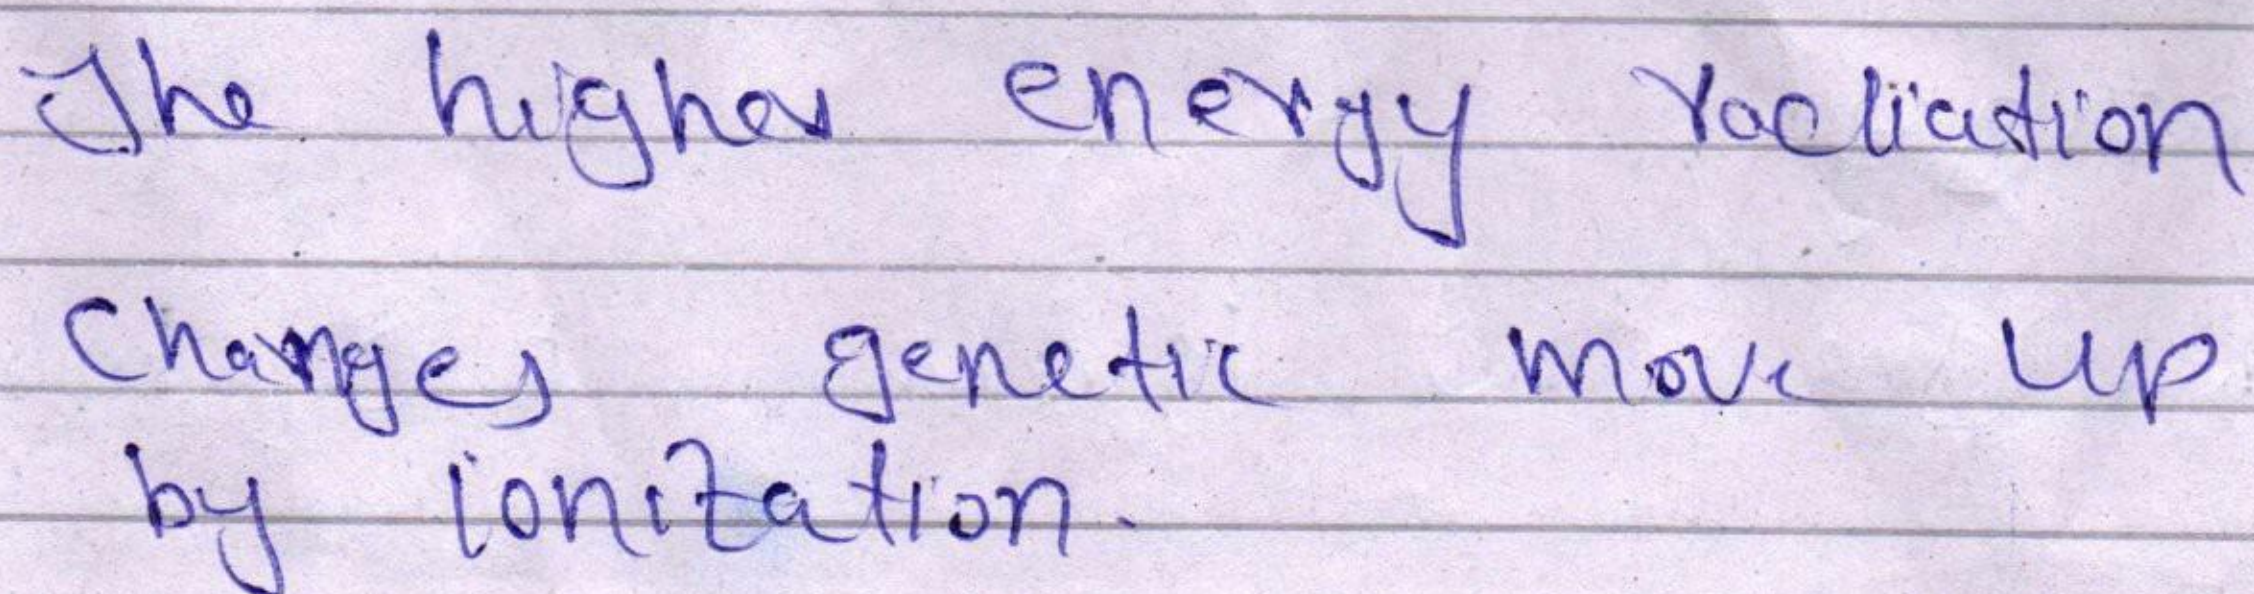 The higher energy radiation
Changes genetic move up
by ionization.